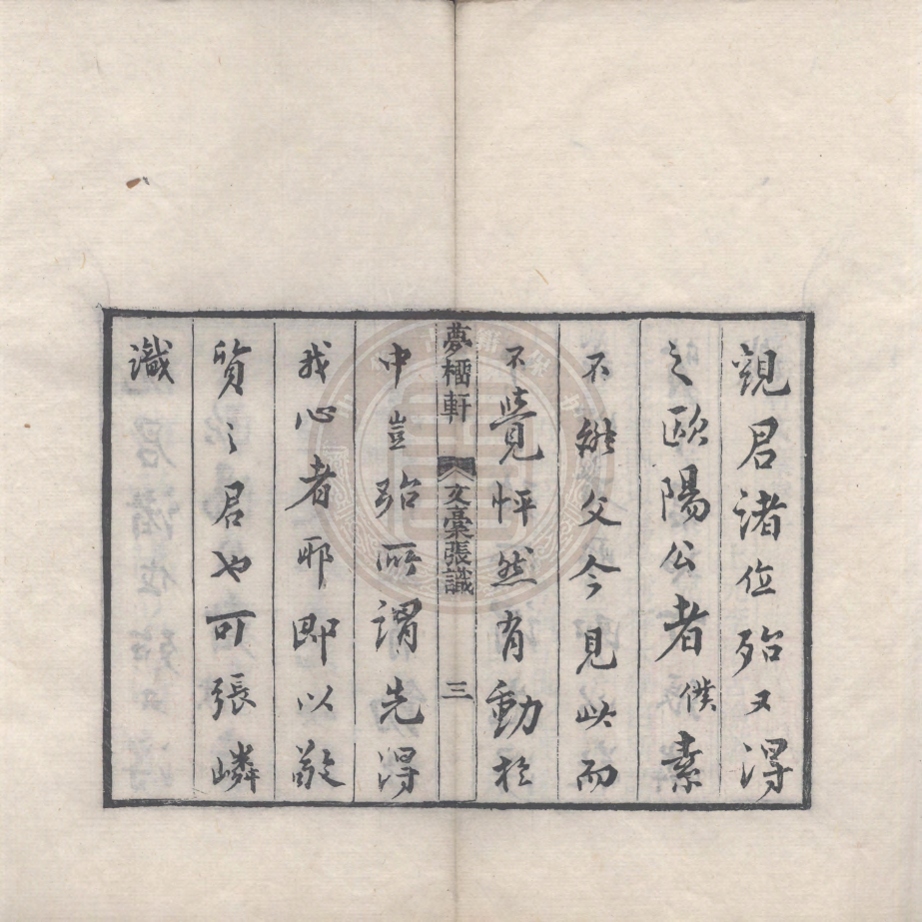 觀君諸作殆又得
之歐陽公者僕素
不能文今見此而
不覺怦然有動於
夢橊軒 文稾張識 三
中豈殆所謂先得
我心者邪即以敬
質之君也可張嶙
識